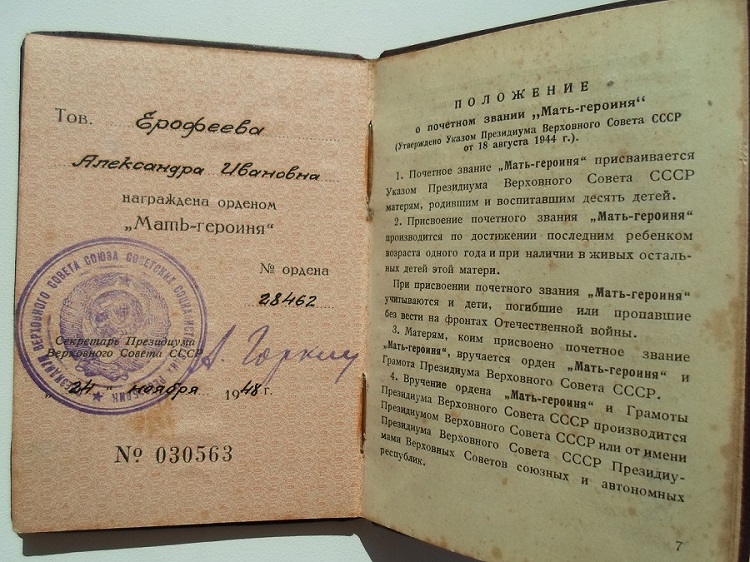 Тов. Ерофеева
Александра Ивановна
награждена орденом
„Мать-героиня“
№ ордена
28462
Секретарь Президиума
Верховного Совета СССР
А Горкин
„24“ ноября 1948 г.
№ 030563
ПОЛОЖЕНИЕ
о почётном звании „Мать-героиня“
(Утверждено Указом Президиума Верховного Совета СССР
от 18 августа 1944 г.).
1. Почетное звание „Мать-героиня“ присваивается
Указом Президиума Верховного Совета СССР
матерям, родившим и воспитавшим десять детей.
2. Присвоение почетного звания „Мать-героиня“
производится по достижении последним ребенком
возраста одного года и при наличии в живых осталь-
ных детей этой матери.
При присвоении почетного звания „Мать-героиня“
учитываются и дети, погибшие или пропавшие
без вести на фронтах Отечественной войны.
3. Матерям, коим присвоено почетное звание
„Мать-героиня“, вручается орден „Мать-героиня“ и
Грамота Президиума Верховного Совета СССР.
4. Вручение ордена „Мать-героиня“ и Грамоты
Президиума Верховного Совета СССР производится
Президиумом Верховного Совета СССР или от имени
Президиума Верховного Совета СССР Президиу-
мами Верховных Советов союзных и автономных
республик.
7